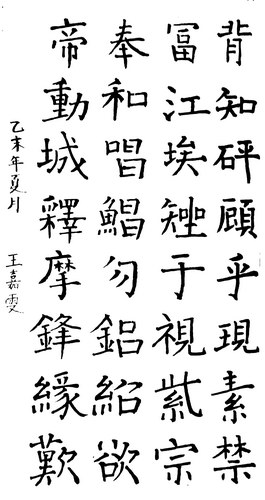 背知砰顧乎現素禁
冨江埃矬于視紫宗
奉和唱鯧勿鋁紹欲
帝動城釋摩鋒緣歎
乙未年夏月 王嘉雯